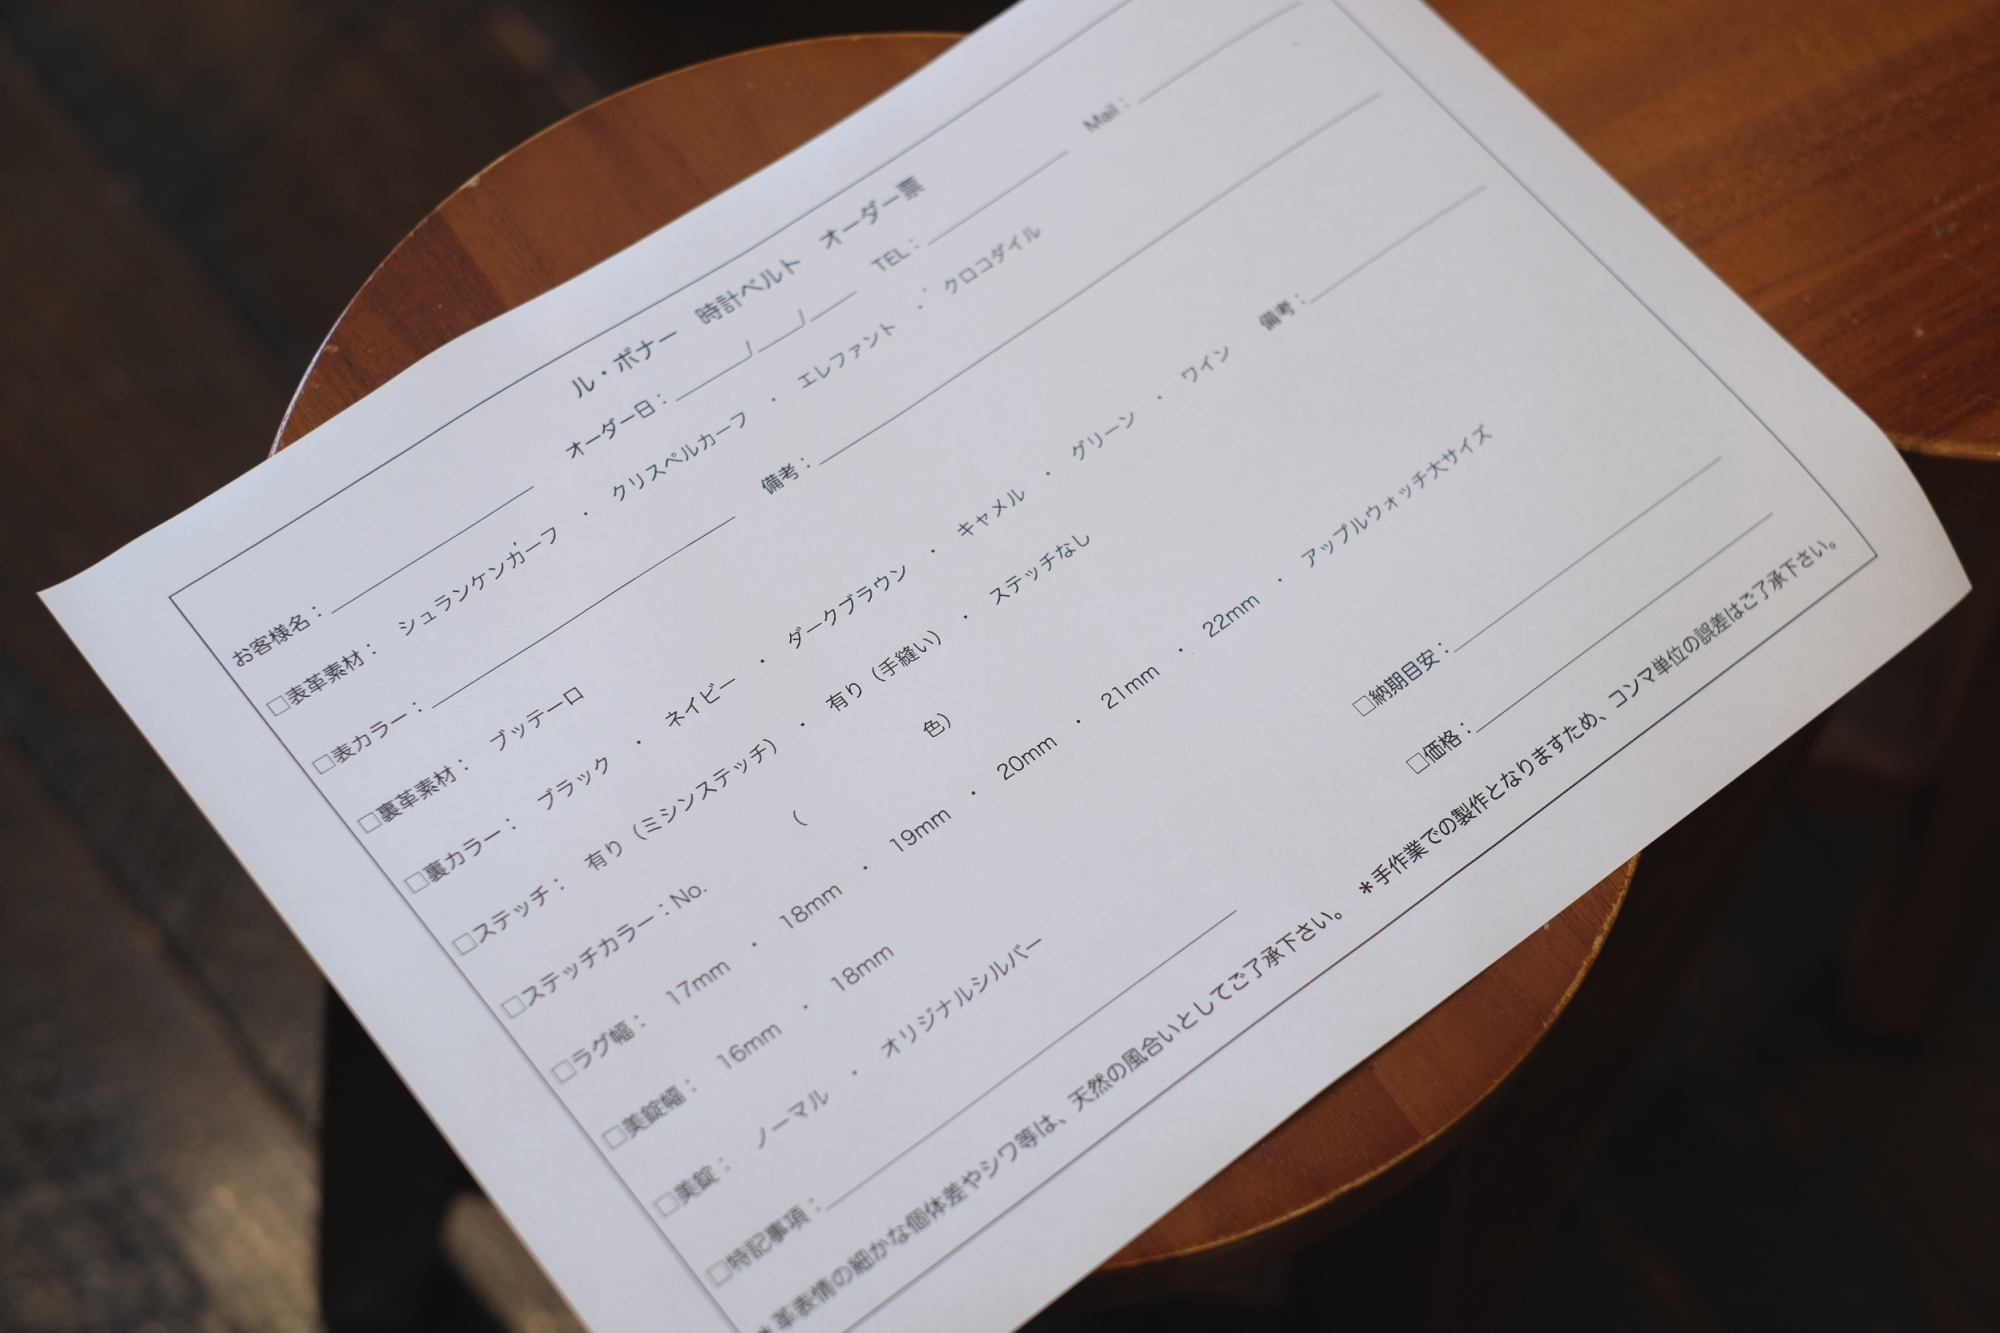 ル・ボナー　時計ベルト　オーダー票
お客様名：　オーダー日：　/　/　TEL：　Mail：
□表革素材：　シュランケンカーフ　・　クリスペルカーフ　・　エレファント　・　クロコダイル
□表カラー：　備考：
□裏革素材：　ブッテーロ
□裏カラー：　ブラック　・　ネイビー　・　ダークブラウン　・　キャメル　・　グリーン　・　ワイン　備考：
□ステッチ：　有り（ミシンステッチ）　・　有り（手縫い）　・　ステッチなし
□ステッチカラー：No.　（　色）
□ラグ幅：　17mm　・　18mm　・　19mm　・　20mm　・　21mm　・　22mm　・　アップルウォッチ大サイズ
□美錠幅：　16mm　・　18mm
□美錠：　ノーマル　・　オリジナルシルバー　□納期目安：
□特記事項：　□価格：
＊革表情の細かな個体差やシワ等は、天然の風合いとしてご了承下さい。　＊手作業での製作となりますため、コンマ単位の誤差はご了承下さい。